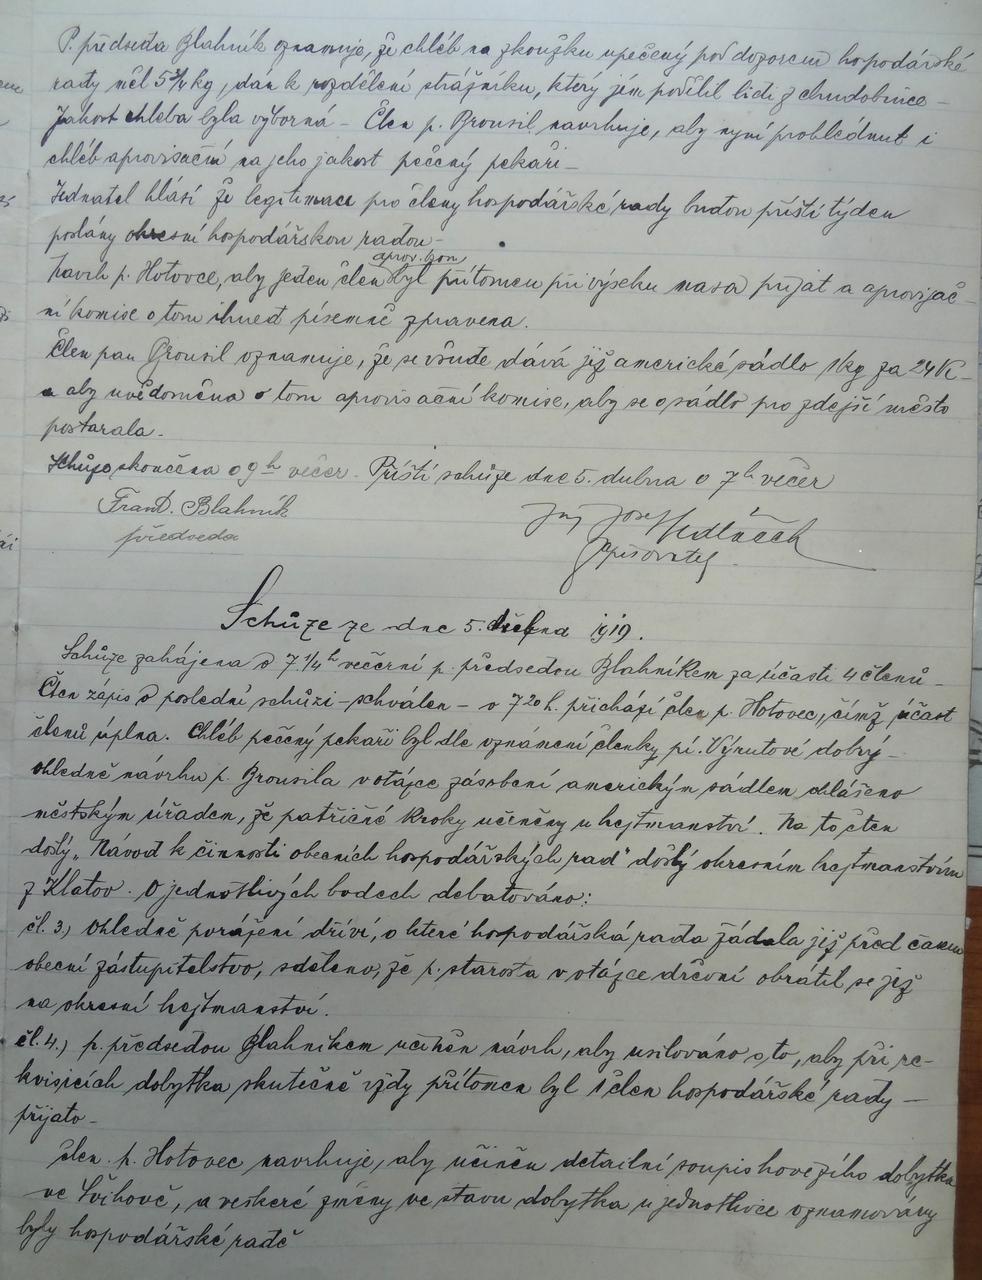 P. předseda Blahník oznamuje, že chléb na zkoušku upečený pod dozorem hospodářské
rady měl 5 3/4 kg, dán k rozdělení strážníku, který jém podělil lidi z chudobince –
Jakost chleba byla výborná – Člen p. Brousil navrhuje, aby nyní prohlédnut i
chléb aprovisační na jeho jakost pečený pekaři –
Jednatel hlásí že legitimace pro členy hospodářské rady budou příští týden
poslány okresní hospodářskou radou –
aprov. kom
Návrh p. Hotovce, aby jeden člen byl přítomen při výseku masa přijat a aprovisač-
ní komise o tom ihned písemně zpravena.
Člen pan Brousil oznamuje, že se všude dává již americké sádlo 1kg za 24 K –
a aby uvědoměna o tom aprovisační komise, aby se o sádlo pro zdejší město
postarala.
Schůze skončena o 9h večer. Příští schůze dne 5. dubna o 7h večer
Frant. Blahník
předseda
Ing Josef Sedláček
zapisovatel
Schůze ze dne 5. dubna 1919.
Schůze zahájena o 7.1/4h večerní p. předsedou Blahníkem za účasti 4 členů –
Čten zápis o poslední schůzi – schválen – o 7 20 h. přichází člen p. Hotovec, čímž účast
členů úplna. Chléb pečený pekaři byl dle oznámení členky pí. Výrutové dobrý –
ohledně návrhu p. Brousila v otázce zásobení americkým sádlem ohlášeno
městským úřadem, že patřičné kroky učiněny u hejtmanství. Na to čten
došlý „Návod k činnosti obecních hospodářských rad" došlý okresním hejtmanstvím
z Klatov. O jednotlivých bodech debatováno:
čl. 3.) Ohledně porážení dříví, o které hospodářská rada žádala již před časem
obecní zástupitelstvo, sděleno, že p. starosta v otázce dřevní obrátil se již
na okresní hejtmanství.
čl. 4.) p. předsedou Blahníkem učiněn návrh, aby usilováno o to, aby při re-
kvisicích dobytka skutečně vždy přítomen byl 1 člen hospodářské rady –
přijato –
člen p. Hotovec navrhuje, aby učiněn detailní soupis hovězího dobytka
ve Švihově, a veškeré změny ve stavu dobytka u jednotlivce oznamovány
byly hospodářské radě